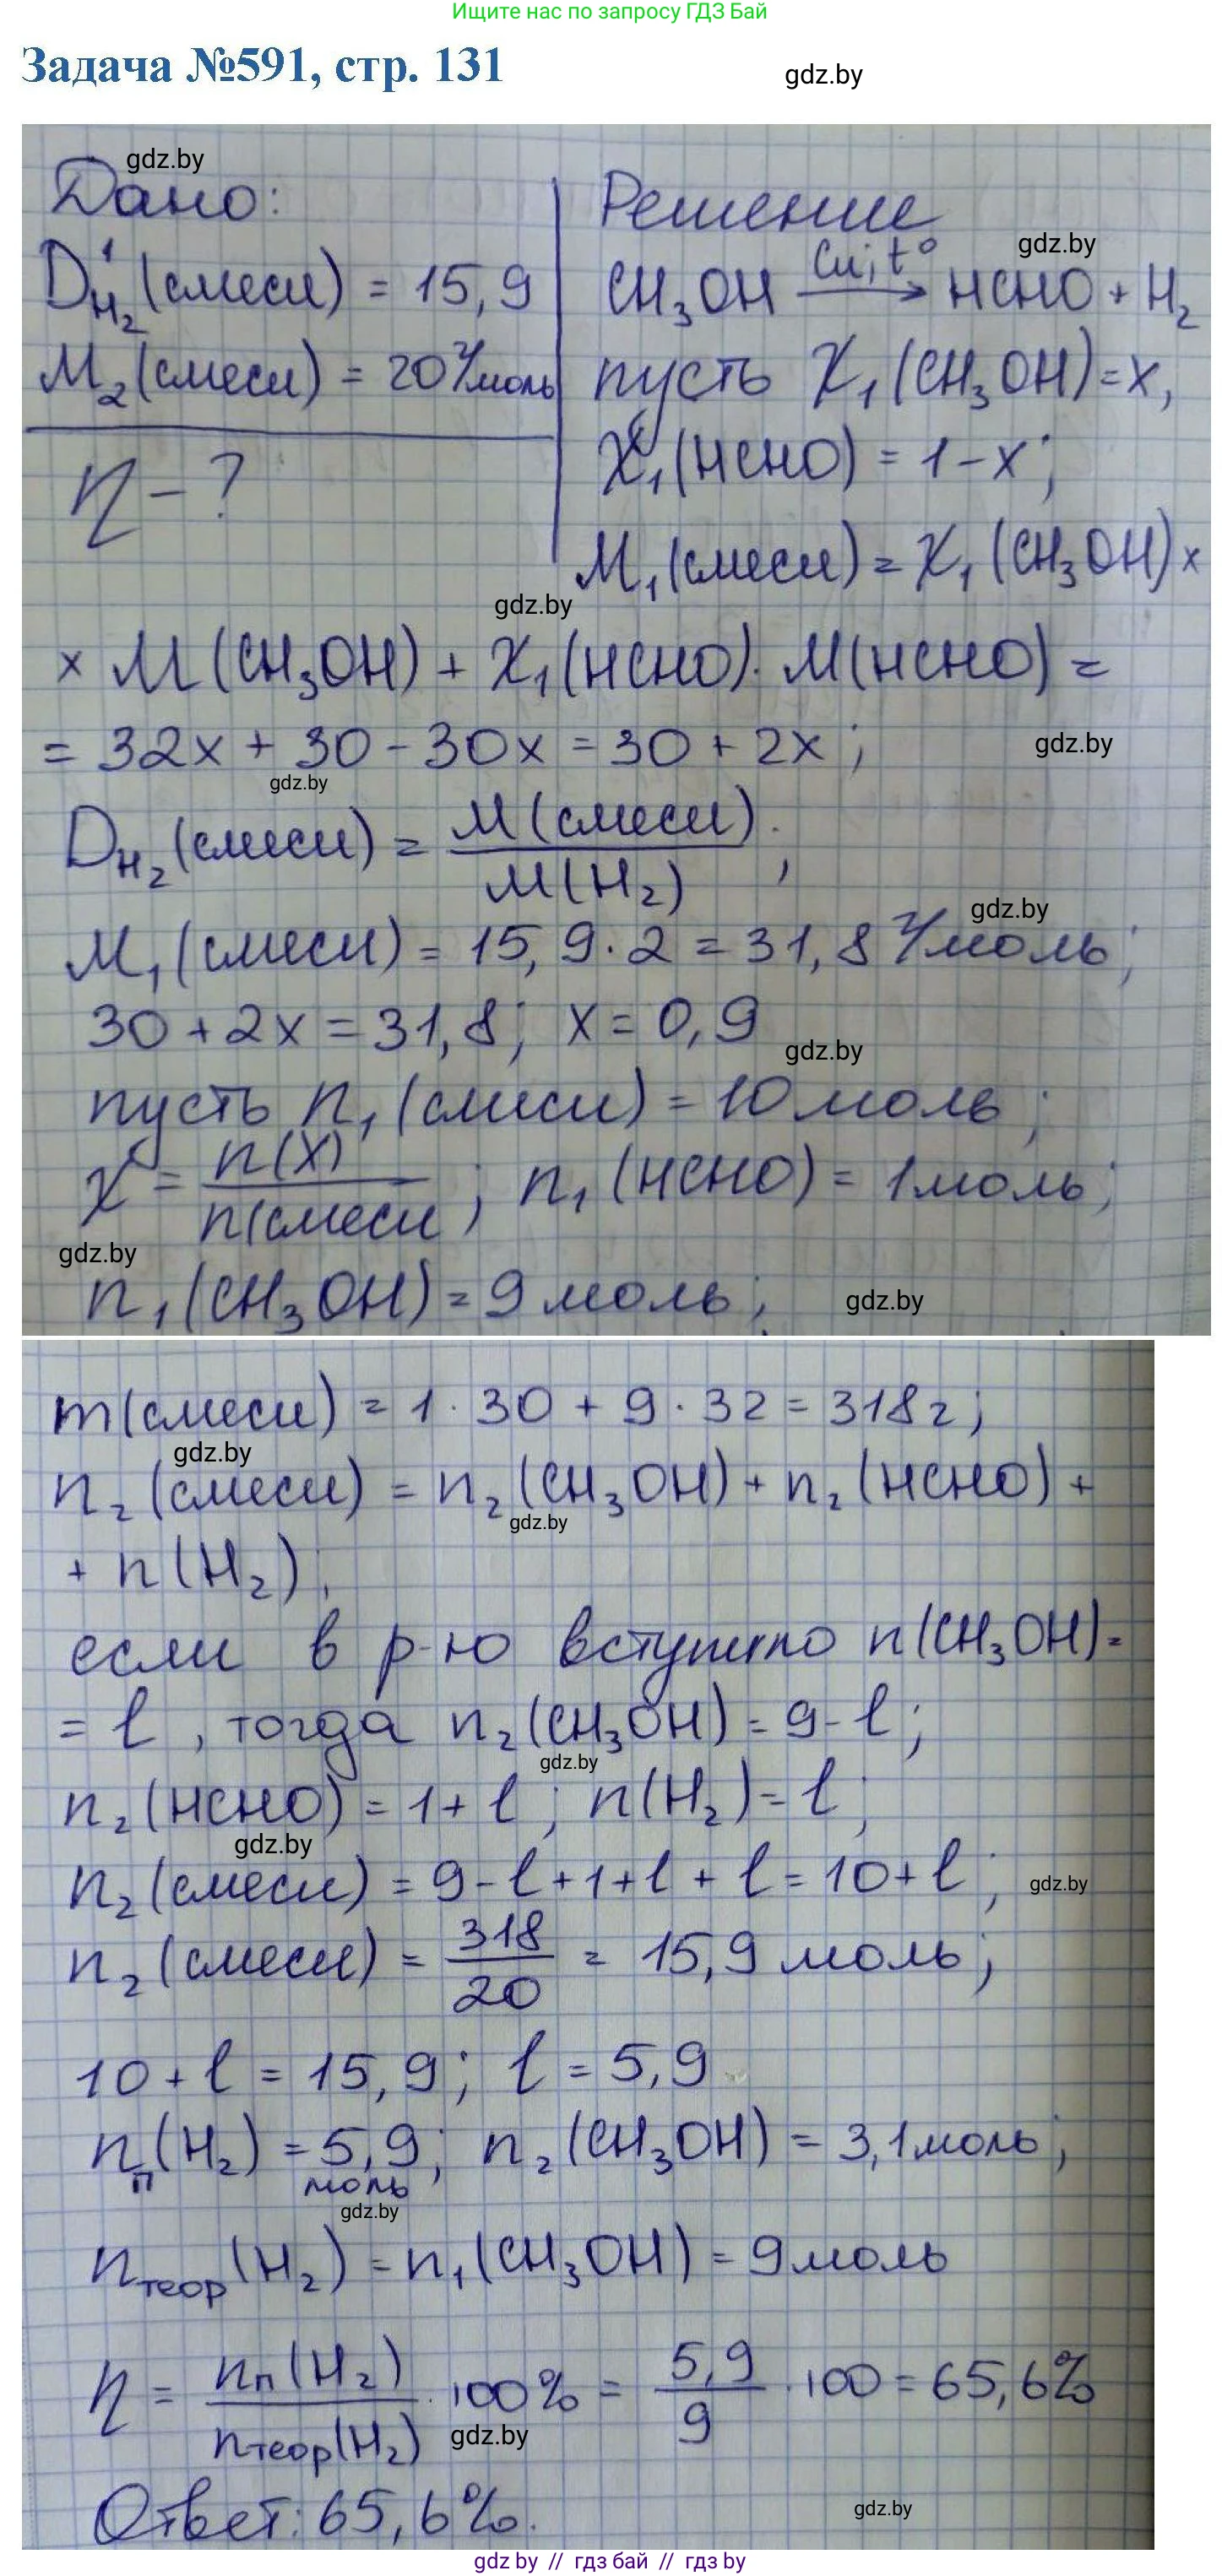 Ищите нас по запросу ГДЗ Бай
Задача №591, стр. 131
gdz.by
gdz.by
Дано:
Решение
D¹H₂(смеси) = 15,9
CH₃OH →(Cu, t°) HCHO + H₂
gdz.by
M₂(смеси) = 20 г/моль
пусть χ₁(CH₃OH) = x,
η - ?
χ₁(HCHO) = 1-x;
M₁(смеси) = χ₁(CH₃OH) ×
gdz.by
× M(CH₃OH) + χ₁(HCHO) · M(HCHO) =
= 32x + 30 - 30x = 30 + 2x;
gdz.by
gdz.by
D_H₂(смеси) = M(смеси) / M(H₂);
gdz.by
M₁(смеси) = 15,9 · 2 = 31,8 г/моль;
30 + 2x = 31,8; x = 0,9
gdz.by
пусть n₁(смеси) = 10 моль;
χ = n(X) / n(смеси; n₁(HCHO) = 1 моль;
gdz.by
n₁(CH₃OH) = 9 моль;
gdz.by
m(смеси) = 1 · 30 + 9 · 32 = 318 г;
gdz.by
n₂(смеси) = n₂(CH₃OH) + n₂(HCHO) +
gdz.by
+ n(H₂);
если в р-ю вступило n(CH₃OH) =
= l, тогда n₂(CH₃OH) = 9 - l;
gdz.by
n₂(HCHO) = 1 + l; n(H₂) = l;
gdz.by
n₂(смеси) = 9 - l + 1 + l + l = 10 + l;
gdz.by
n₂(смеси) = 318 / 20 = 15,9 моль;
10 + l = 15,9; l = 5,9
nп(H₂) = 5,9 моль; n₂(CH₃OH) = 3,1 моль;
gdz.by
nтеор(H₂) = n₁(CH₃OH) = 9 моль
η = nп(H₂) / nтеор(H₂) · 100% = 5,9 / 9 · 100 = 65,6%
gdz.by
Ответ: 65,6%.
gdz.by
gdz by // гдз бай // гдз by